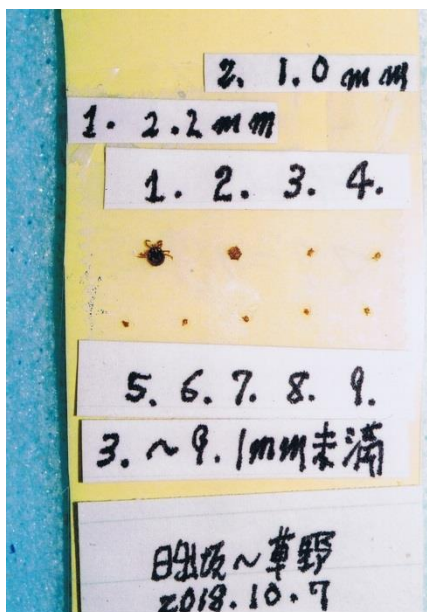 2. 1.0mm
1. 2.2mm
1. 2. 3. 4.
5. 6. 7. 8. 9.
3.～9.1mm未満
日出坂～草野
2018.10.7